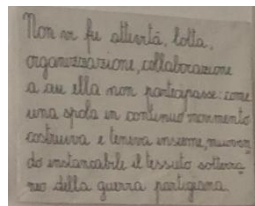 Non vi fu attività, lotta,
organizzazione, collaborazione
a cui ella non partecipasse: come
una spola in continuo movimento
costruiva e teneva insieme, muoven
do instancabile il tessuto sotterra
neo della guerra partigiana.